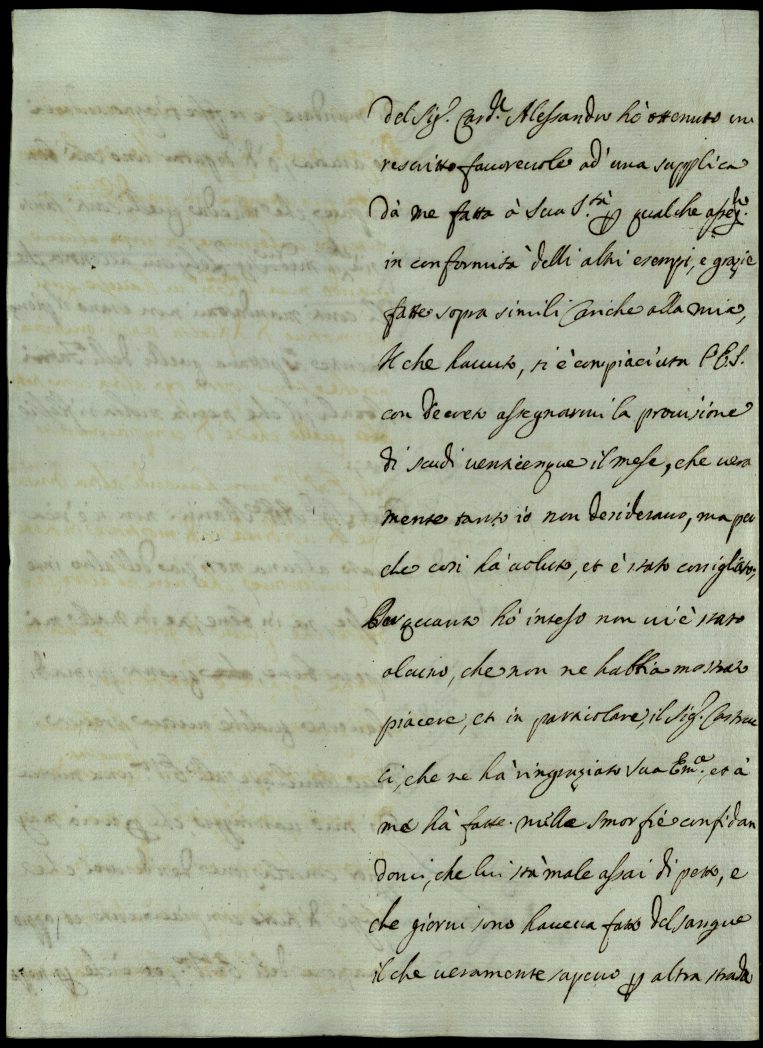 del Sig.r Card.le Alessandro hò ottenuto un
rescritto fauoreuole ad' una supplica
dà me fatta à Sua S.tà p qualche asseg.to
in conformità delli altri esempi, e grazie
fatte sopra simili Cariche alla mia,
Il che hauuto, si è compiaciuta
con decreto assegnarmi la prouisione
di scudi uenticinque il mese, che uera
mente tanto io non desiderauo, ma per
che cosi hà uoluto, et è stato consigliato,
Per quanto hò inteso non ui è stato
alcuno, che non ne habbia mostrato
piacere, et in particolare, il Sig.r Castruc
ci, che ne hà ringraziato Sua Em.a, et à
me hà fatte mille smorfie confidan
domi, che lui stà male assai di petto, e
che giorni sono haueua fatto del sangue
il che ueramente sapeuo p altra strada